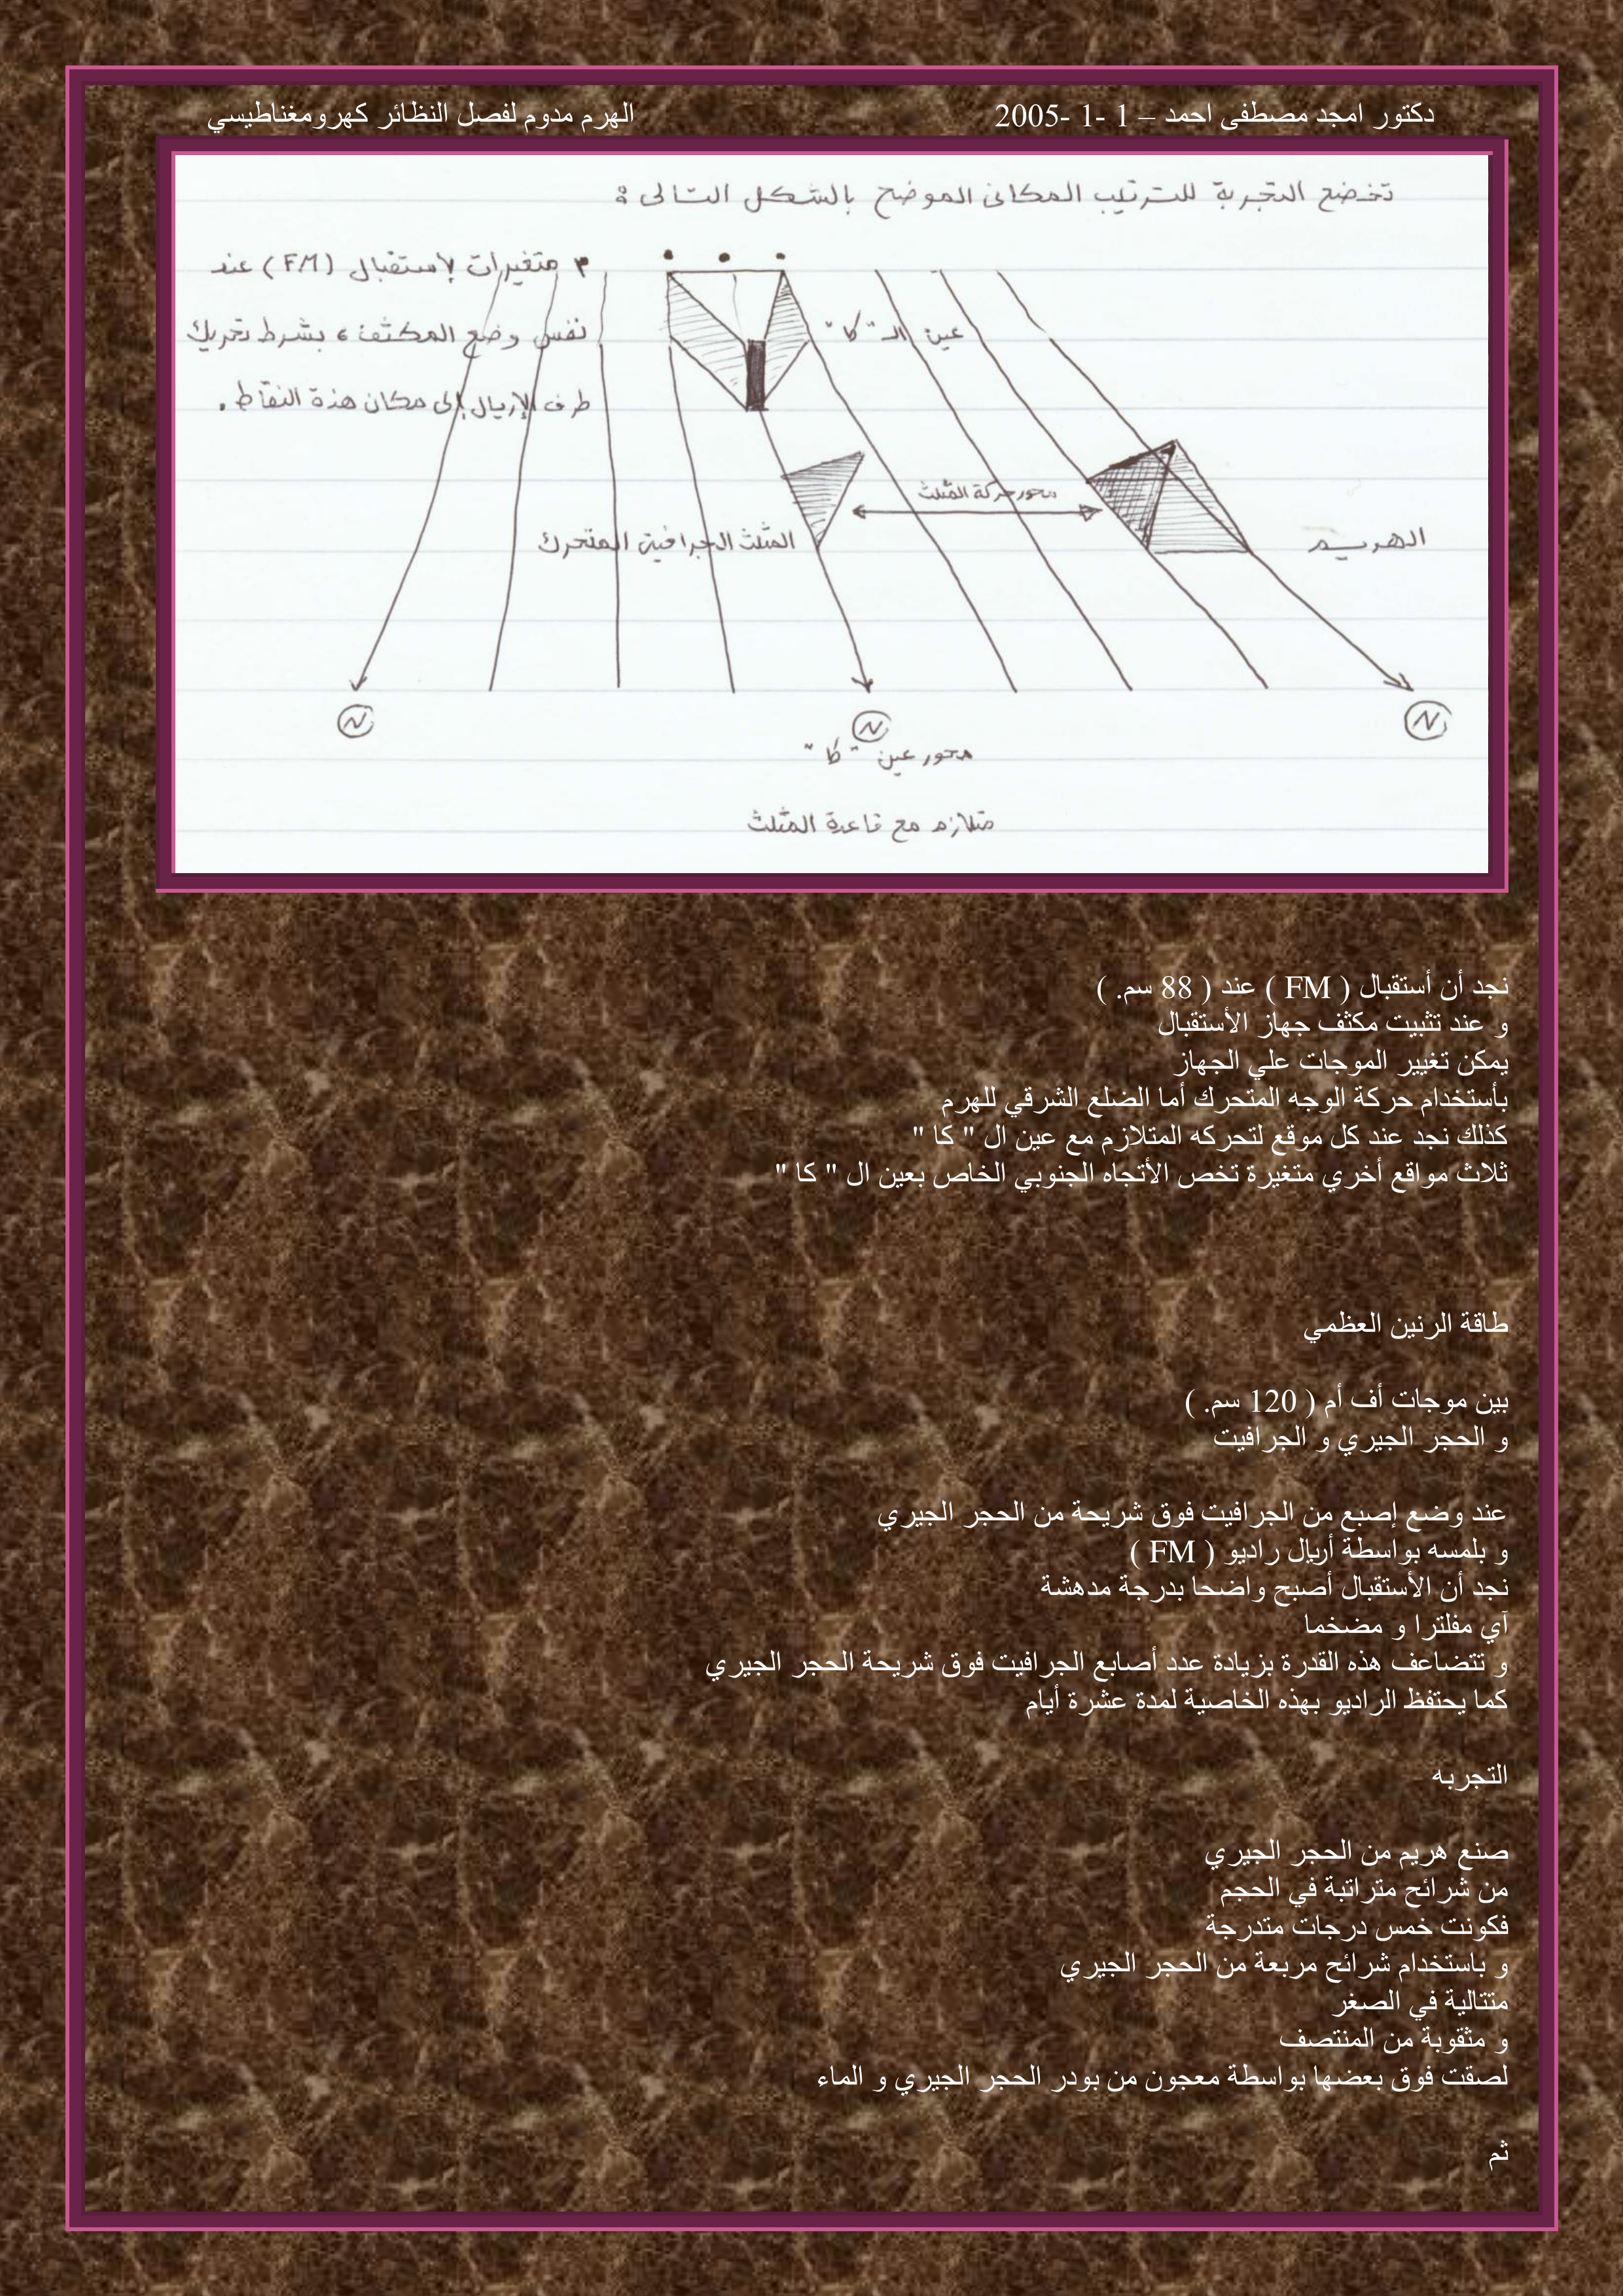 دكتور امجد مصطفى احمد – 1 -1 -2005 الهرم مدوم لفصل النظائر كهرومغناطيسي
تخضع التجربة للترتيب المكانى الموضح بالشكل التالى :
٣ متغيرات لإستقبال (FM) عند
نفس وضع المكثف ، بشرط تحريك
طرف الإريال إلى مكان هذة النقاط .
عين الـ "كا"
محور حركة المثلث
المثلث الجرافيتى المتحرك
الهريم
N N N
محور عين "كا"
متلازم مع قاعدة المثلث
نجد أن أستقبال ( FM ) عند ( 88 سم. )
و عند تثبيت مكثف جهاز الأستقبال
يمكن تغيير الموجات علي الجهاز
بأستخدام حركة الوجه المتحرك أما الضلع الشرقي للهرم
كذلك نجد عند كل موقع لتحركه المتلازم مع عين ال " كا "
ثلاث مواقع أخري متغيرة تخص الأتجاه الجنوبي الخاص بعين ال " كا "
طاقة الرنين العظمي
بين موجات أف أم ( 120 سم. )
و الحجر الجيري و الجرافيت
عند وضع إصبع من الجرافيت فوق شريحة من الحجر الجيري
و بلمسه بواسطة أريال راديو ( FM )
نجد أن الأستقبال أصبح واضحا بدرجة مدهشة
آي مفلترا و مضخما
و تتضاعف هذه القدرة بزيادة عدد أصابع الجرافيت فوق شريحة الحجر الجيري
كما يحتفظ الراديو بهذه الخاصية لمدة عشرة أيام
التجربه
صنع هريم من الحجر الجيري
من شرائح متراتبة في الحجم
فكونت خمس درجات متدرجة
و باستخدام شرائح مربعة من الحجر الجيري
متتالية في الصغر
و مثقوبة من المنتصف
لصقت فوق بعضها بواسطة معجون من بودر الحجر الجيري و الماء
ثم